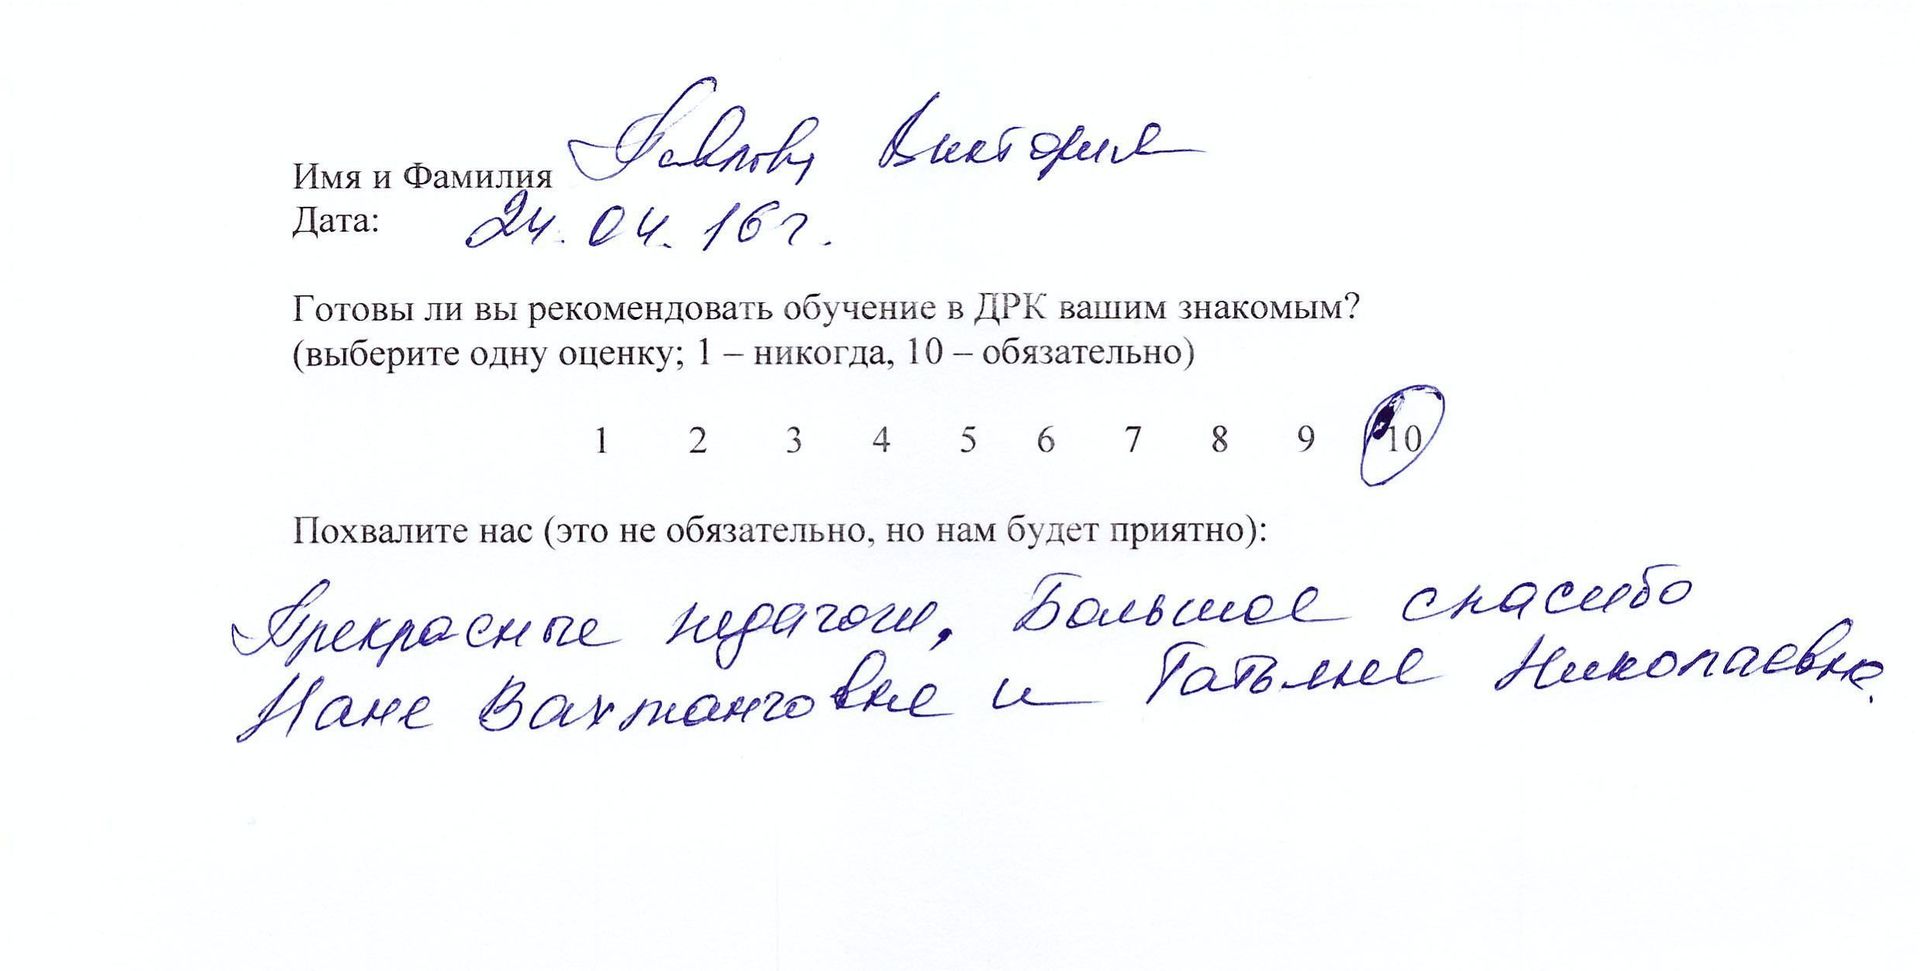 Имя и Фамилия Павлова Виктория
Дата: 24.04.16г.
Готовы ли вы рекомендовать обучение в ДРК вашим знакомым?
(выберите одну оценку; 1 – никогда, 10 – обязательно)
1 2 3 4 5 6 7 8 9 10
Похвалите нас (это не обязательно, но нам будет приятно):
Прекрасные педагоги, Большое спасибо
Нане Вахтанговне и Татьяне Николаевне.